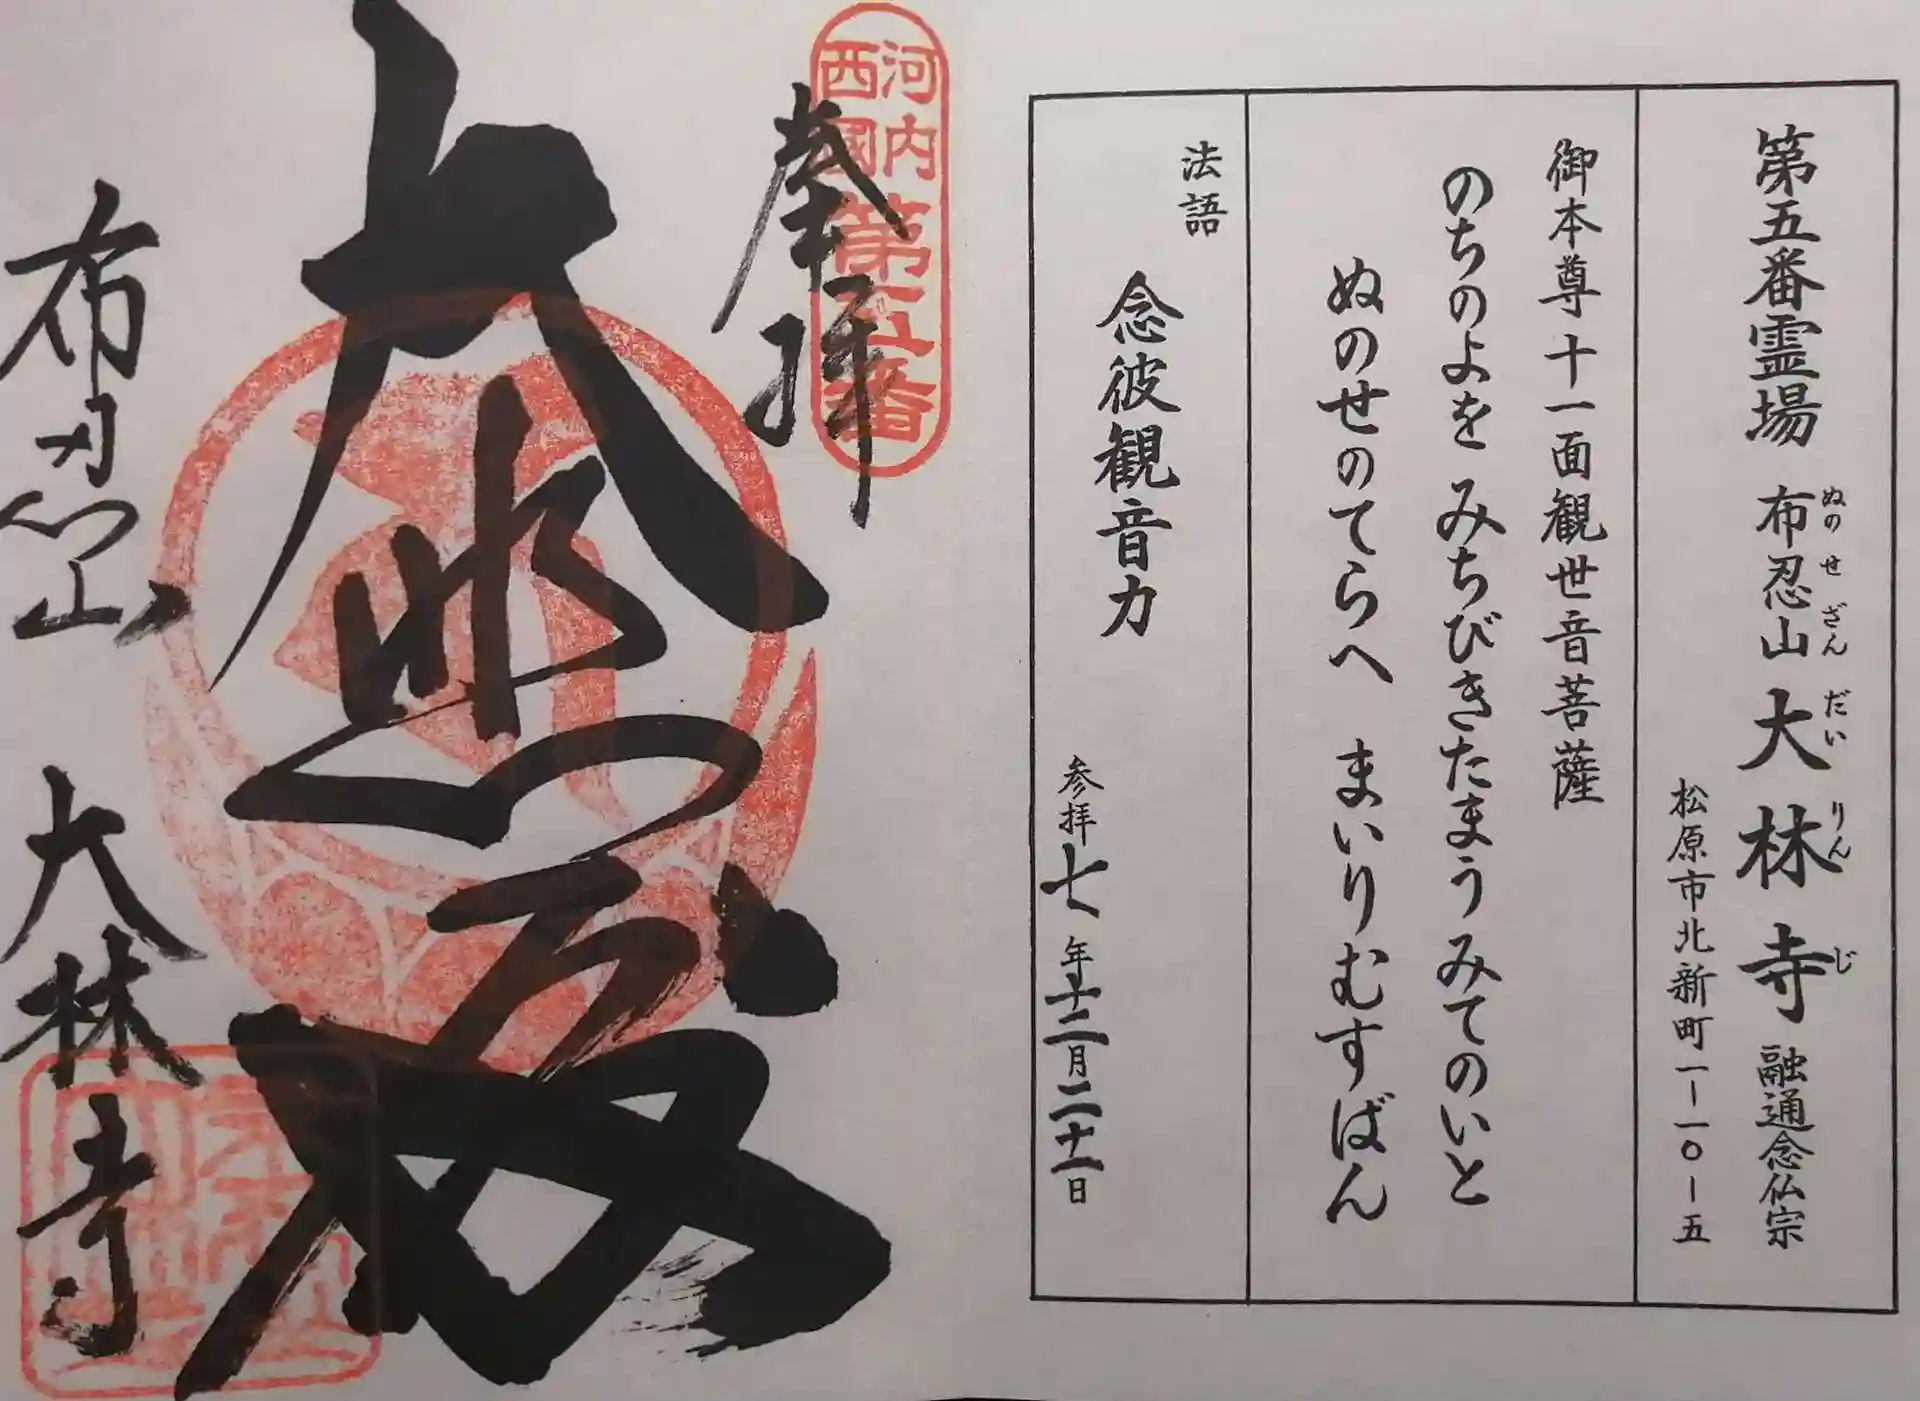 第五番霊場 布忍山 大林寺 融通念仏宗
ぬのせざん だいりんじ
松原市北新町一ー一〇ー五
御本尊十一面観世音菩薩
のちのよを みちびきたまうみてのいと
ぬのせのてらへ まいりむすばん
法語
念彼観音力
参拝七年十二月二十一日
河内
西國
第五番
奉拝
大悲殿
布忍山 大林寺